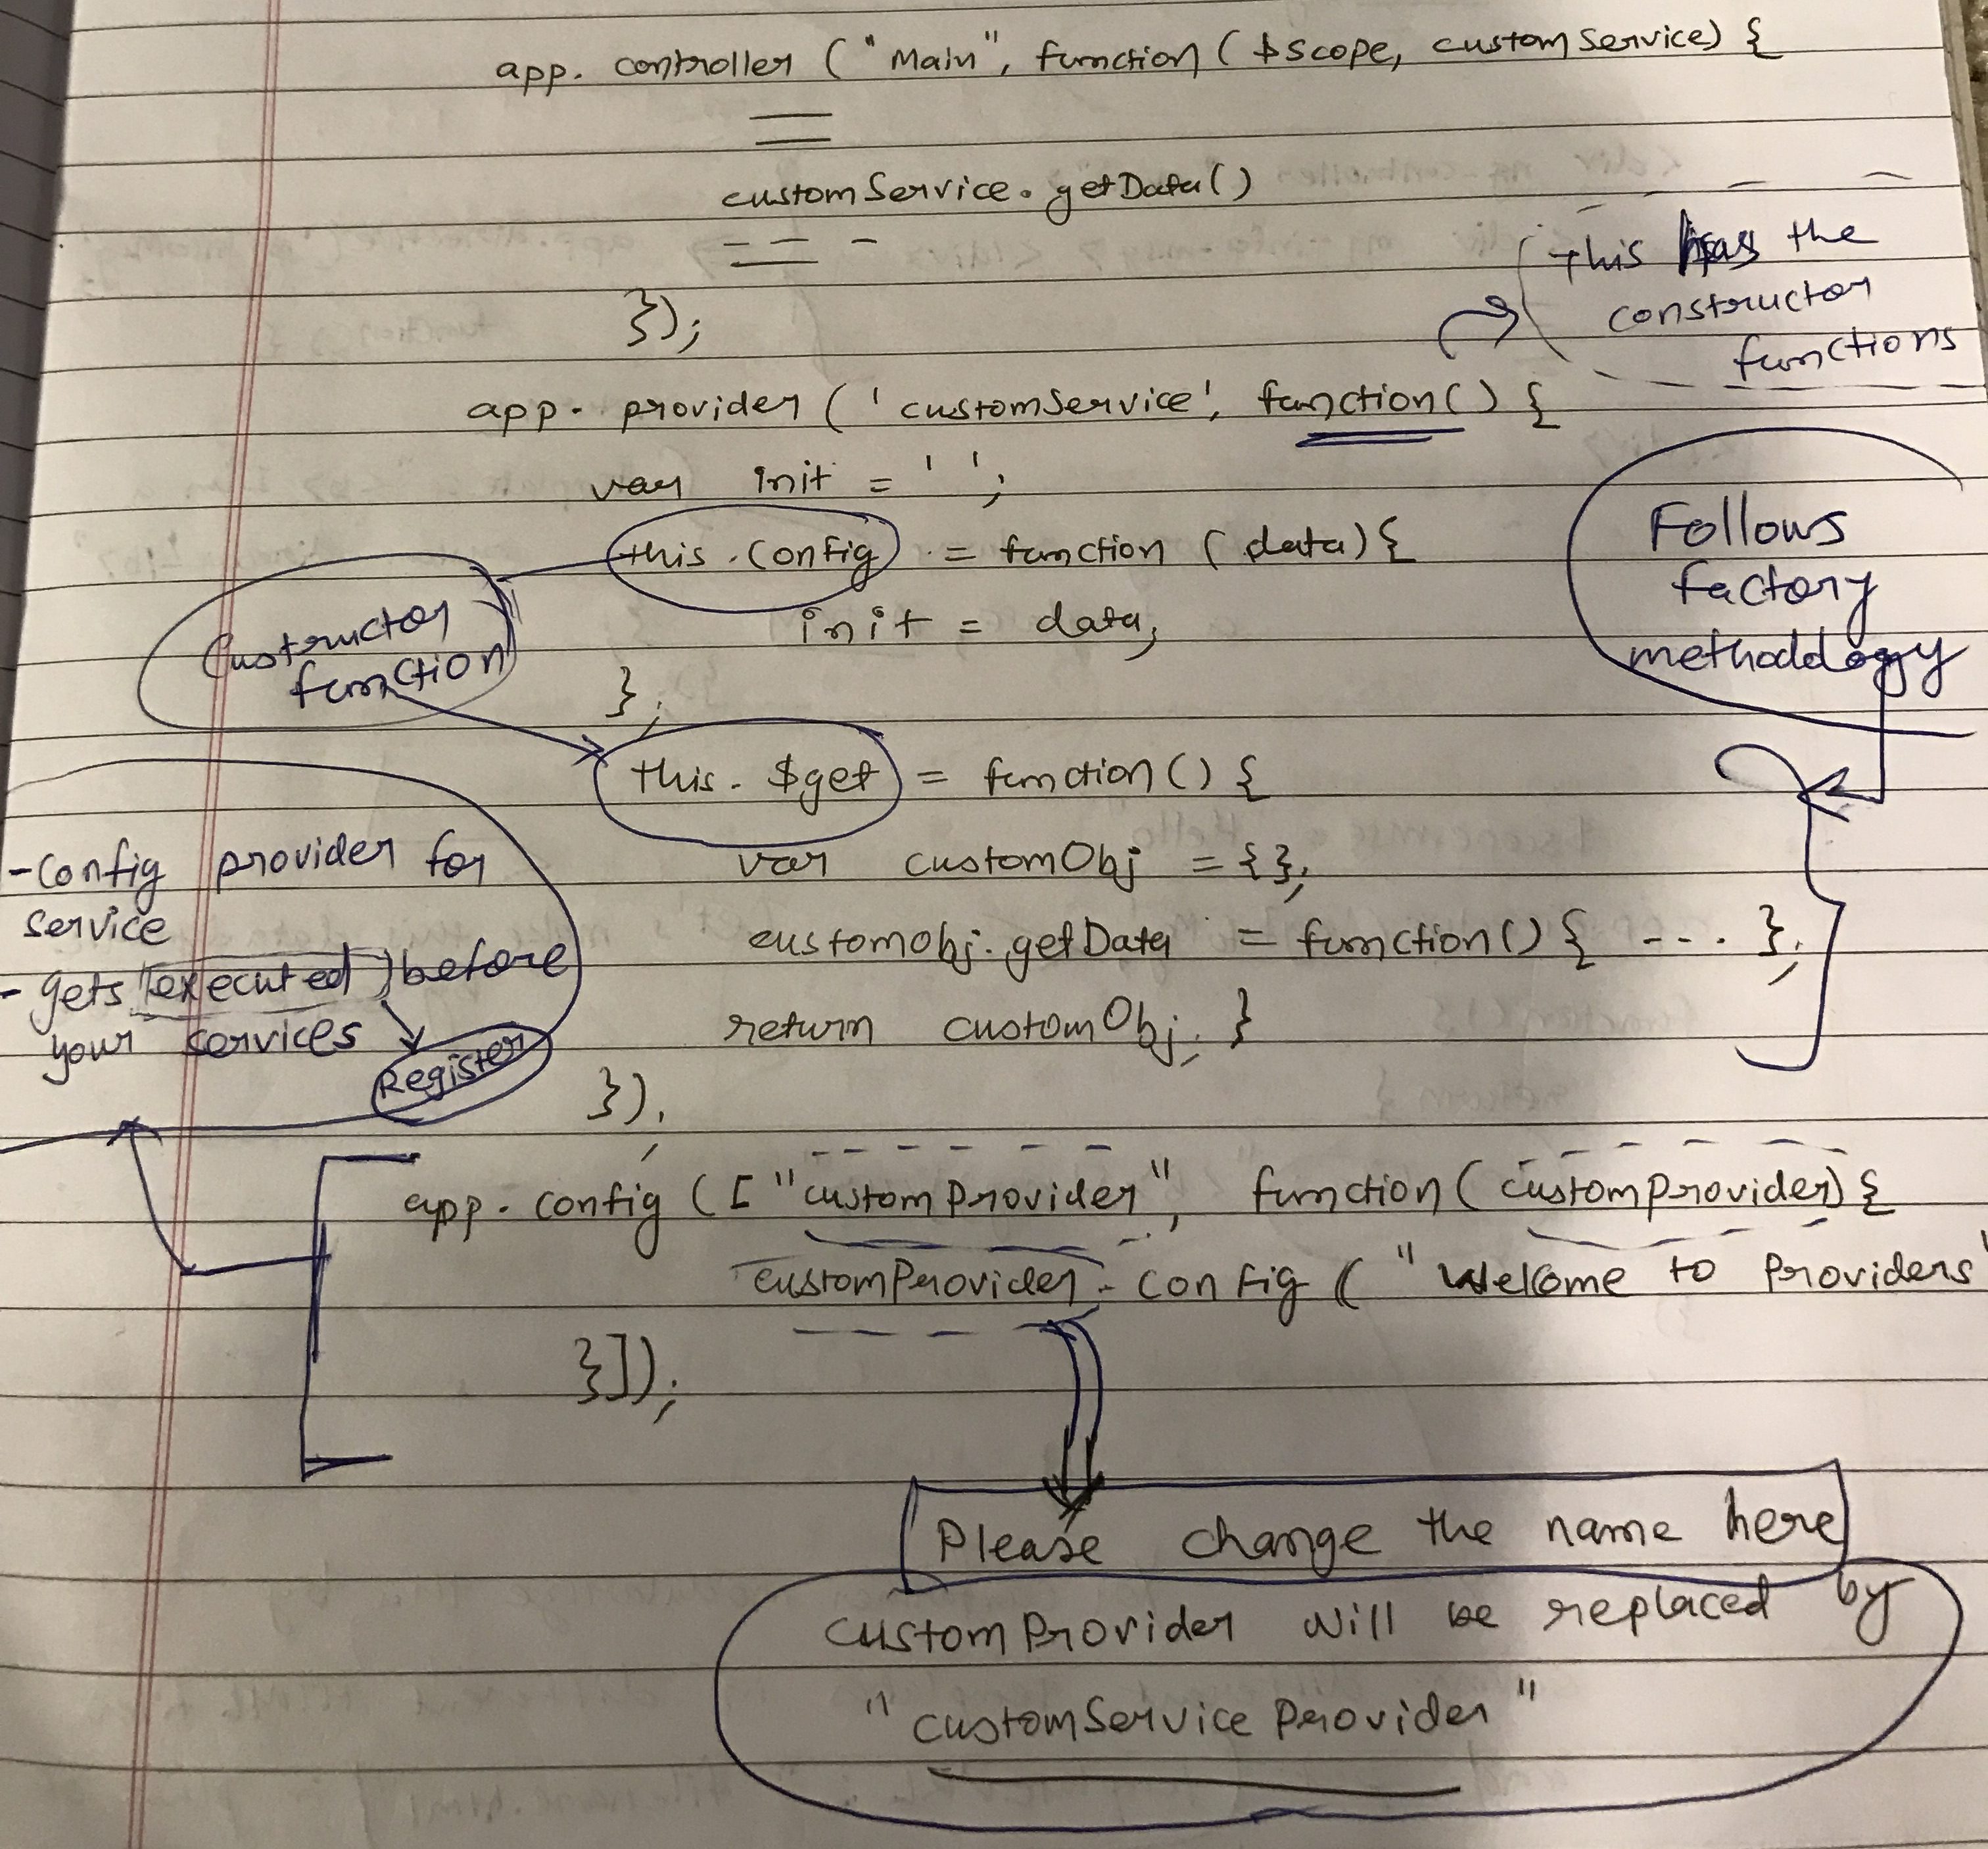 app. controller ("Main", function ($scope, customService) {
customService. getData()
});
This has the
constructor
functions
app. provider ('customService', function() {
var init = ' ';
this. Config = function (data) {
init = data;
};
Custructor
function
Follows
factory
methoddogy
this. $get = function() {
var customObj = {};
customobj. getData = function() { --.. };
return customObj; }
});
- Config provider for
service
- gets executed before
your services
Register
app. config (["customProvider", function (customProvider) {
customProvider. config ("Welcome to Providers"
}]);
Please change the name here
customProvider will be replaced by
"customServiceProvider"